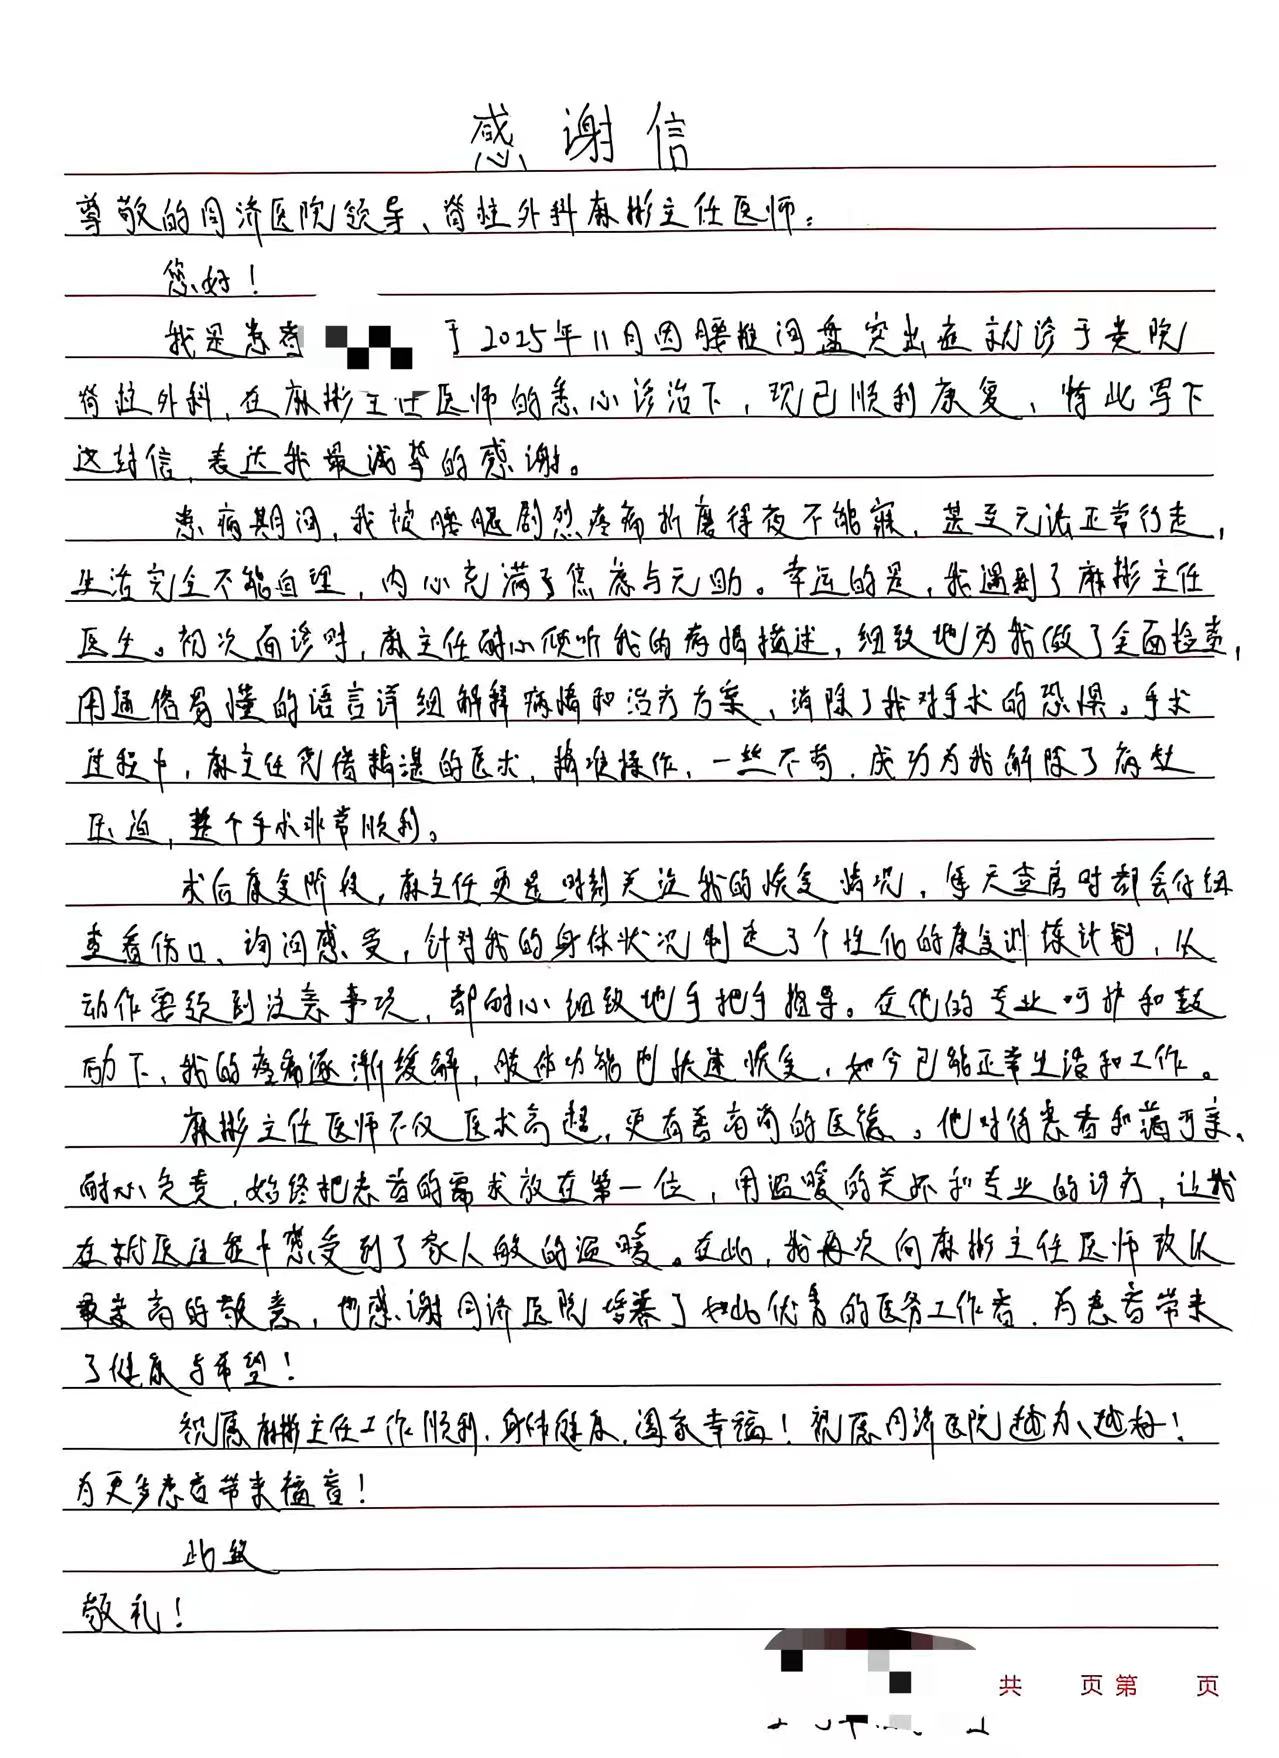 感谢信
尊敬的同济医院领导、脊柱外科麻彬主任医师：
您好！
我是患者 于2025年11月因腰椎间盘突出症就诊于贵院
脊柱外科，在麻彬主任医师的悉心诊治下，现已顺利康复，特此写下
这封信，表达我最诚挚的感谢。
患病期间，我被腰腿剧烈疼痛折磨得夜不能寐，甚至无法正常行走，
生活完全不能自理，内心充满了焦虑与无助。幸运的是，我遇到了麻彬主任
医生。初次面诊时，麻主任耐心倾听我的病情描述，细致地为我做了全面检查，
用通俗易懂的语言详细解释病情和治疗方案，消除了我对手术的恐惧。手术
过程中，麻主任凭借精湛的医术，精准操作，一丝不苟，成功为我解除了病处
压迫，整个手术非常顺利。
术后康复阶段，麻主任更是时刻关注我的恢复情况，每天查房时都会仔细
查看伤口、询问感受，针对我的身体状况制定了个性化的康复训练计划，从
动作要领到注意事项，都耐心细致地手把手指导。在他的专业呵护和鼓
励下，我的疼痛逐渐缓解，肢体功能也快速恢复，如今已能正常生活和工作。
麻彬主任医师不仅医术高超，更有着高尚的医德。他对待患者和蔼可亲、
耐心负责，始终把患者的需求放在第一位，用温暖的关怀和专业的诊疗，让我
在就医过程中感受到了家人般的温暖。在此，我再次向麻彬主任医师致以
最崇高的敬意，也感谢同济医院培养了如此优秀的医务工作者，为患者带来
了健康与希望！
祝愿麻彬主任工作顺利，身体健康，阖家幸福！祝愿同济医院越办越好！
为更多患者带来福音！
此致
敬礼！
共 页 第 页